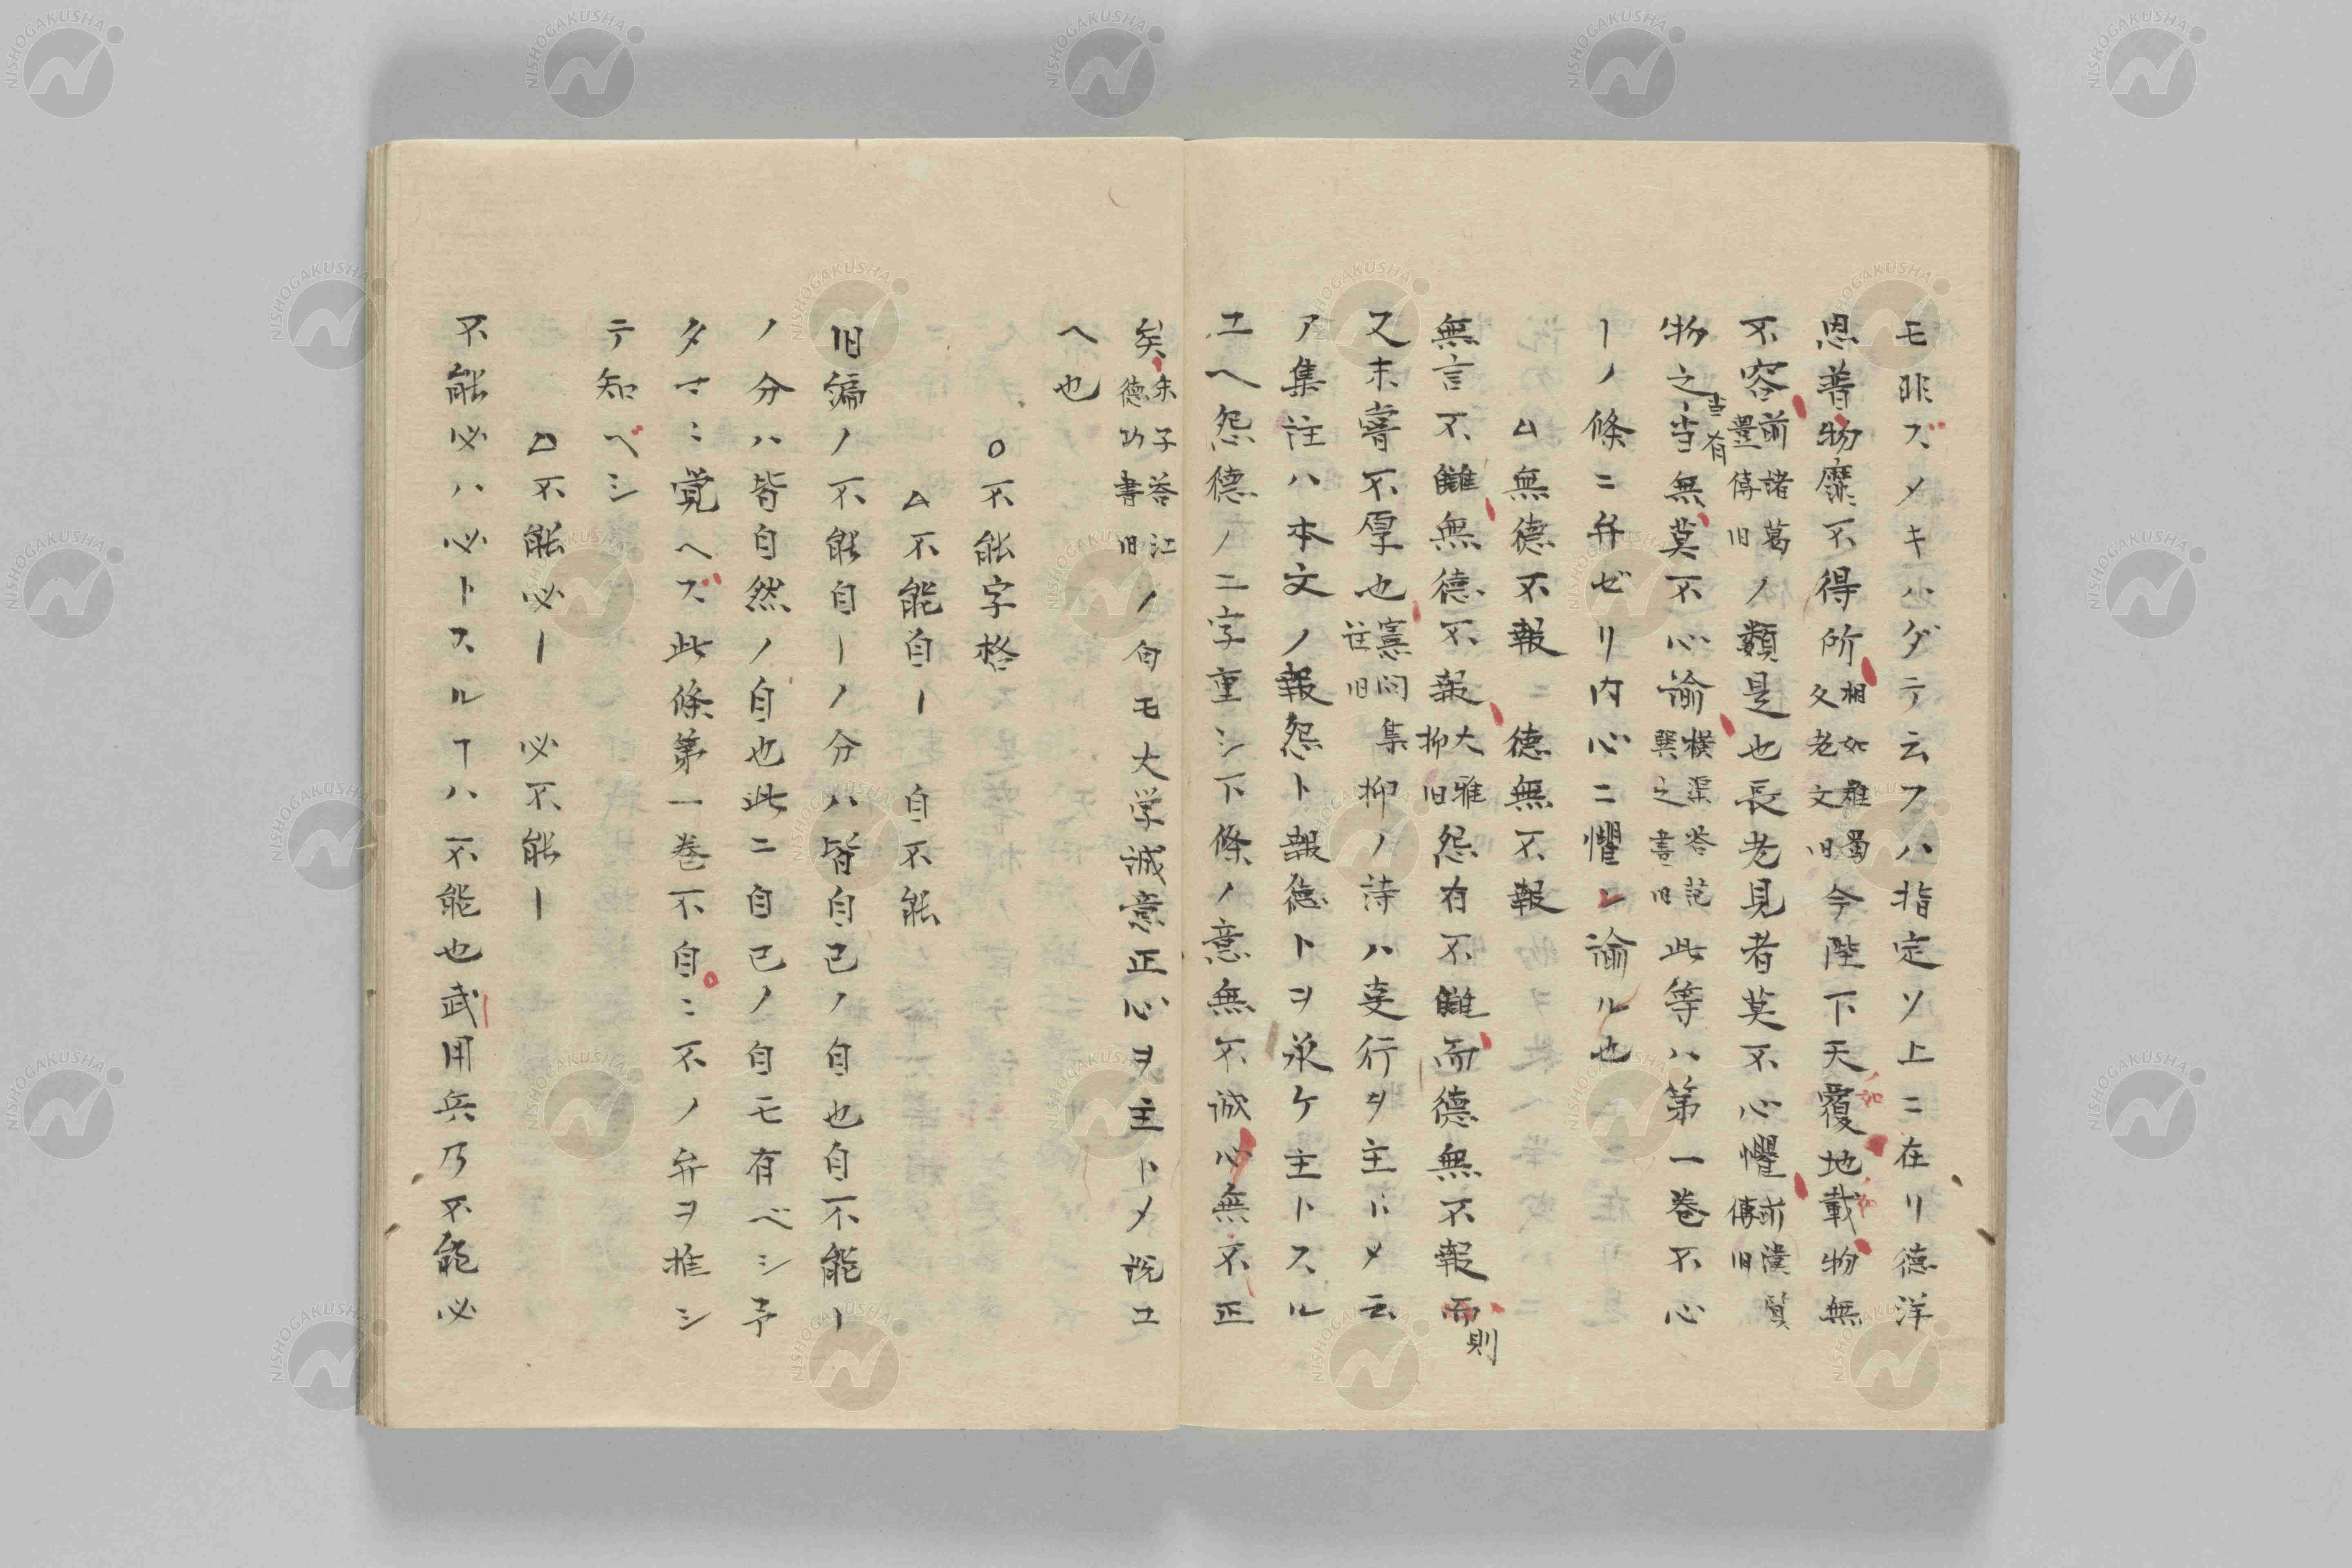 モ非ズメキハダテ云フハ指定ソ上ニ在リ德洋
恩普物靡不得所相如難蜀父老文旧今陛下天覆地載物無
不容前諸葛豊傳旧ノ類是也長老見者莫不心懼前漢質傳旧
物之當有当無莫不心諭横渠答范巽之書旧此等ハ第一巻不心
ーノ條ニ弁ゼリ内心ニ懼レ諭ル也
△無德不報ニ德無不報
無言不讎無德不報大雅抑旧怨有不讎而德無不報而則
又未嘗不厚也憲問集註旧抑ノ詩ハ叓行ヲ主トメ云
ア集註ハ本文ノ報怨ト報德トヲ承ケ主トスル
ユヘ怨德ノ二字重シ下條ノ意無不誠心無不正
矣朱子答江德功書旧ノ旬モ大学誠意正心ヲ主トメ説ユ
ヘ也
○不能字格
△不能自ー 自不能
旧編ノ不能自ーノ分ハ皆自己ノ自也自不能ー
ノ分ハ皆自然ノ自也此ニ自己ノ自モ有ベシ予
タマ〻覚ヘズ此條第一巻不自〻不ノ弁ヲ推シ
テ知ベシ
△不能必ー 必不能ー
不能必ハ必トスルヿハ不能也武用兵乃不能必
NISHOGAKUSHA